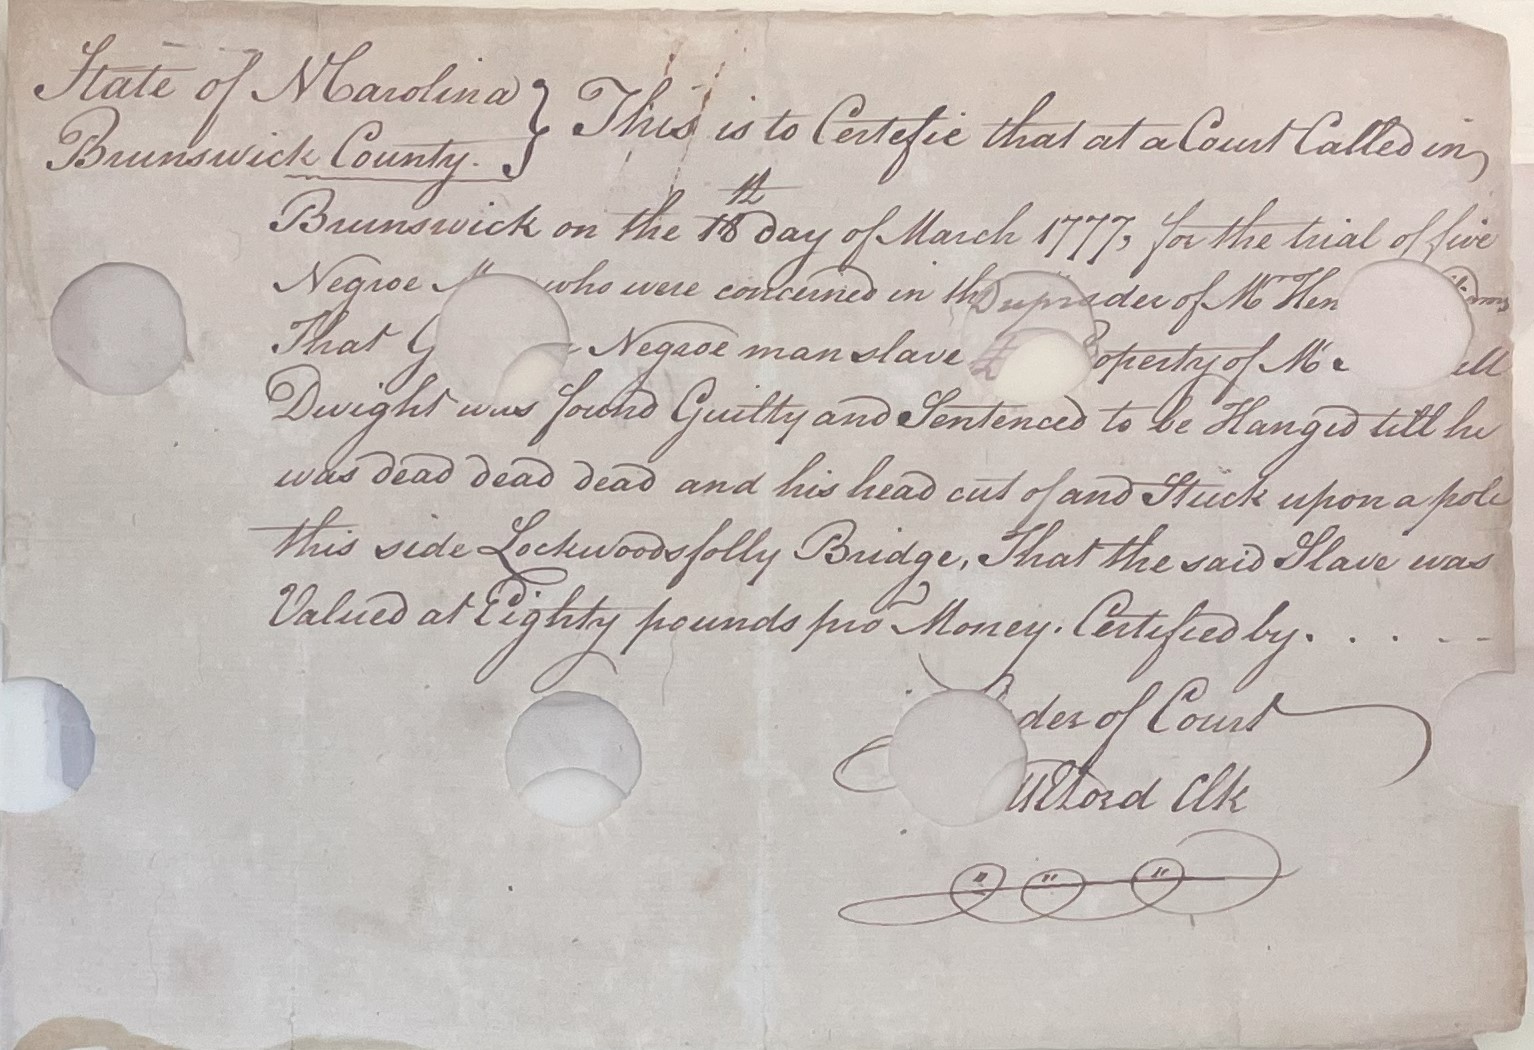 State of N Carolina
Brunswick County. } This is to Certefie that at a Court Called in
Brunswick on the 18th day of March 1777, for the trial of five
Negroe who were concerned in th der of Mr Hen
That G Negroe man slave operty of Mr ell
Dwight was found Guilty and Sentenced to be Hanged till he
was dead dead dead and his head cut of and Stuck upon a pole
this side Lockwoodsfolly Bridge, That the said Slave was
Valued at Eighty pounds pro Money. Certified by. . . . --
der of Court
Clk